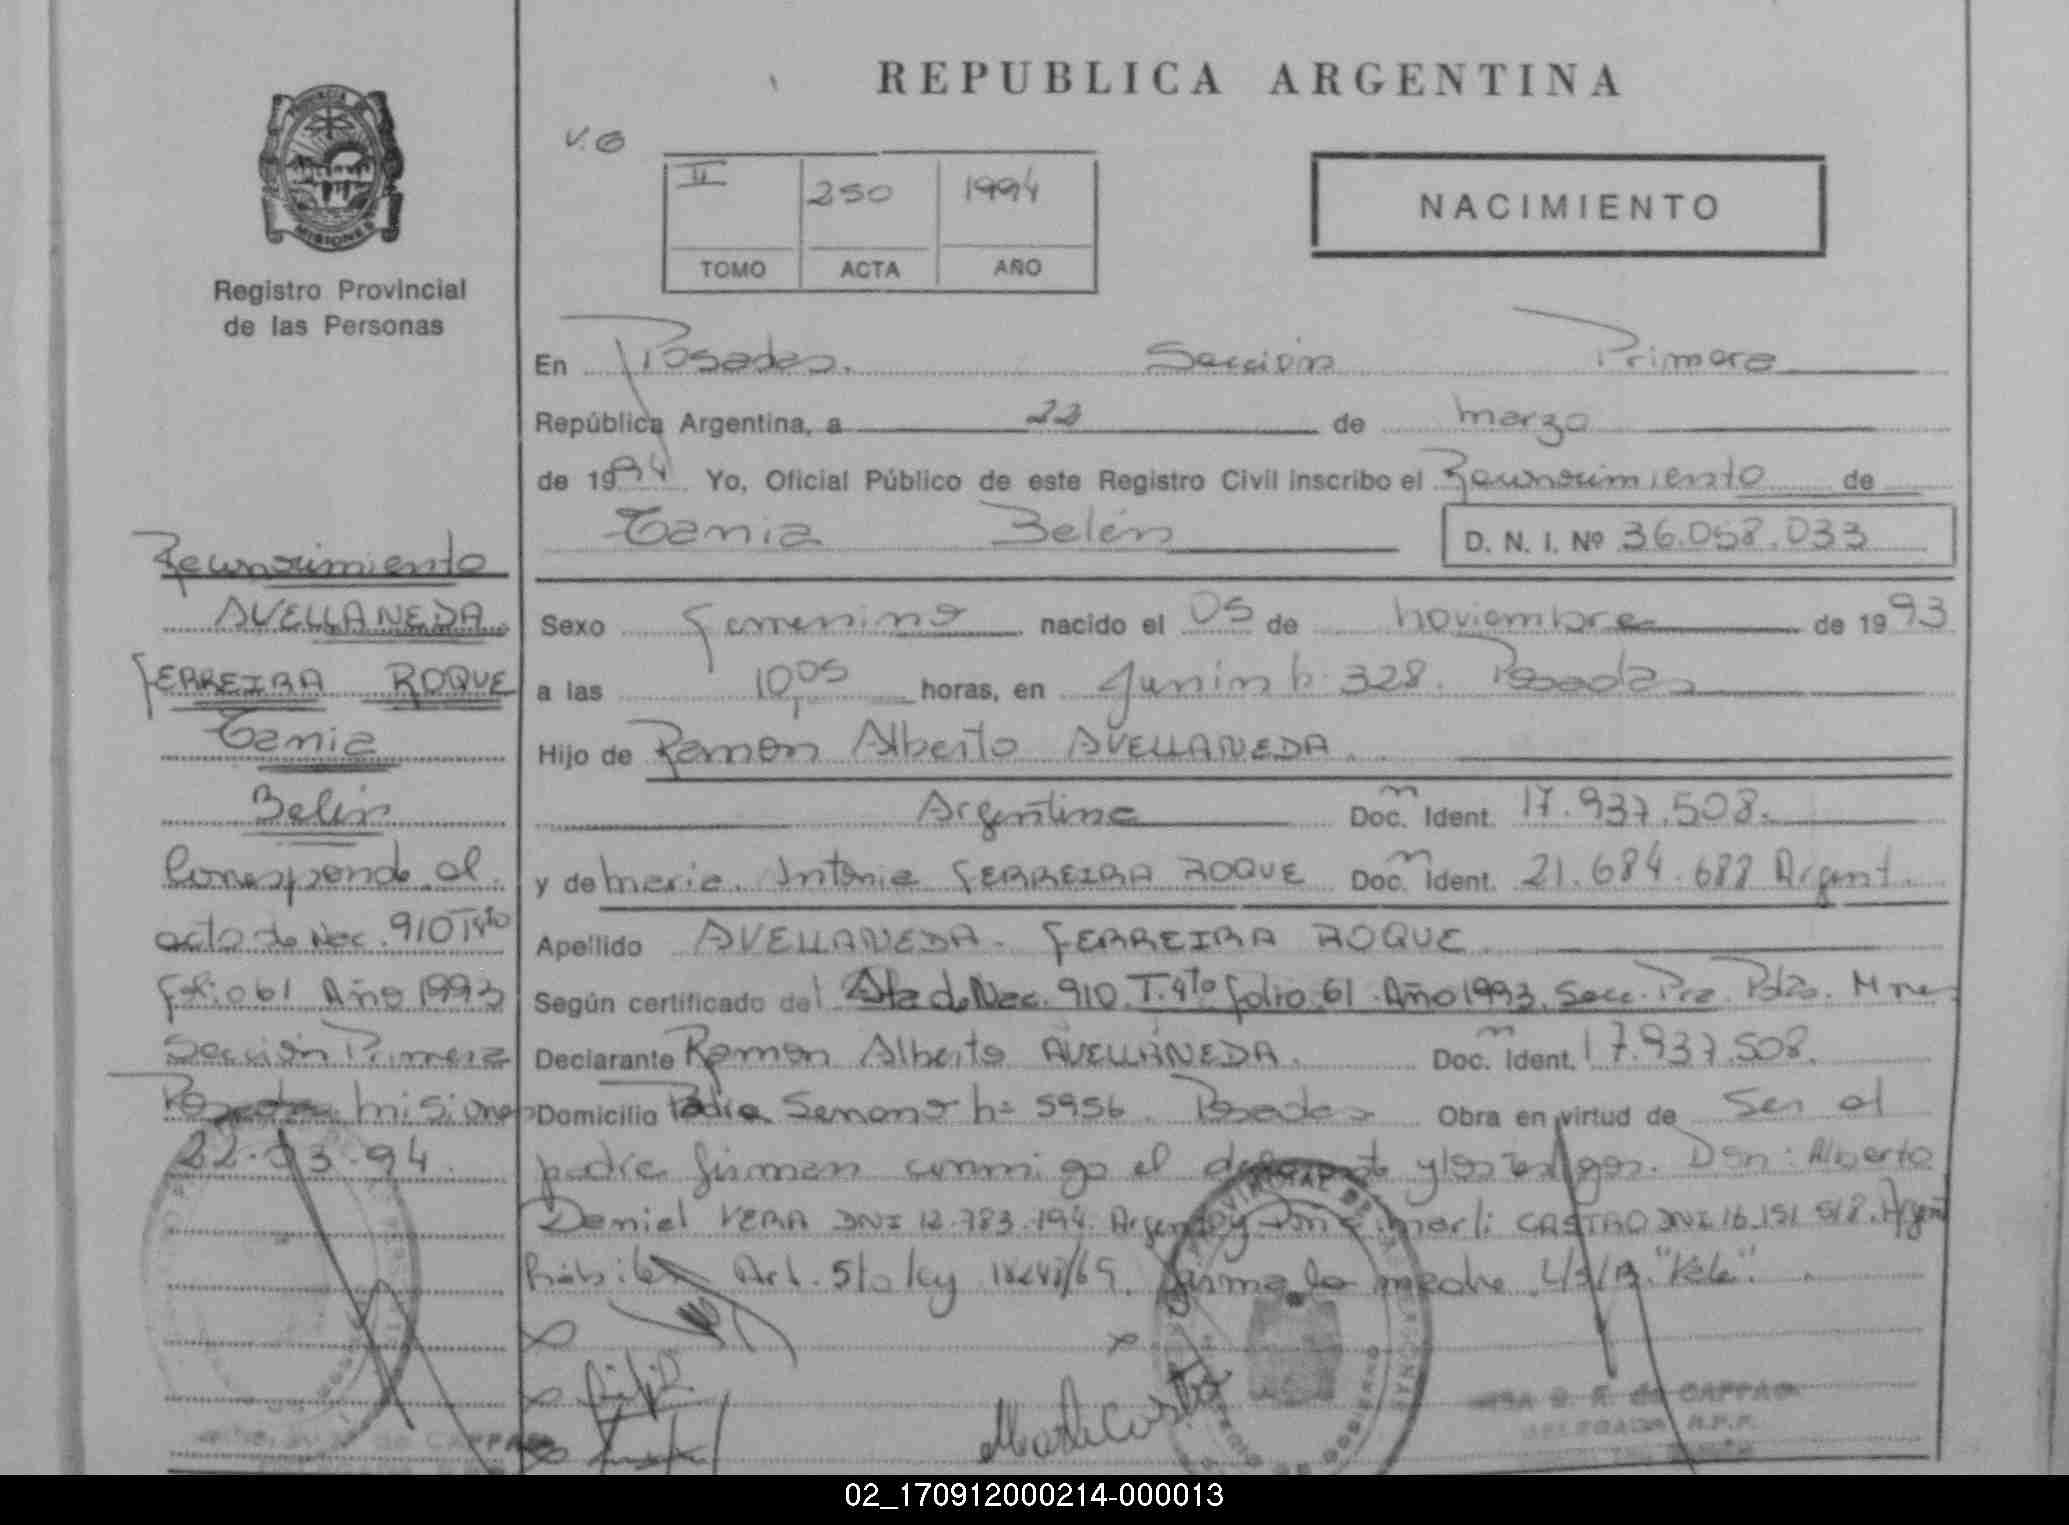 REPUBLICA ARGENTINA
V.G
II 250 1994
TOMO ACTA AÑO
NACIMIENTO
PROVINCIA DE
MISIONES
Registro Provincial
de las Personas
En Posadas. Sección Primera
República Argentina, a 22 de marzo
de 1994 Yo, Oficial Público de este Registro Civil inscribo el Reconocimiento de
Tania Belén D. N. I. Nº 36.058.033
Sexo femenino nacido el 05 de noviembre de 1993
a las 10,05 horas, en Junin 328. Posadas
Hijo de Ramon Alberto AVELLANEDA.
Argentina Doc. Ident. 17.937.508.
y de maria Antonia FERREIRA ROQUE Doc. Ident. 21.684.688 Argent.
Apellido AVELLANEDA. FERREIRA ROQUE
Según certificado del Acta de Nac. 910 T. 4to folio 61 Año 1993. Secc. Pra. Pdas. Mnes
Declarante Ramon Alberto AVELLANEDA. Doc. Ident. 17.937.508.
Domicilio Padre Serrano 5956. Posadas Obra en virtud de Ser el
padre firman conmigo el y los testigos. Don: Alberto
Daniel VERA DNI 12.783.194. Argent y marli CASTRO DNI 16.151.518. Argent
Hábiles Art. 5to ley firma la madre
Reconocimiento
AVELLANEDA
FERREIRA ROQUE
Tania
Belén
Corresponde al
acta de Nac. 910 T 4to
folio 61 Año 1993
Sección Primera
Posadas misiones
22-03-94.
Marli Castro
DELEGADA R.P.P.
02_170912000214-000013